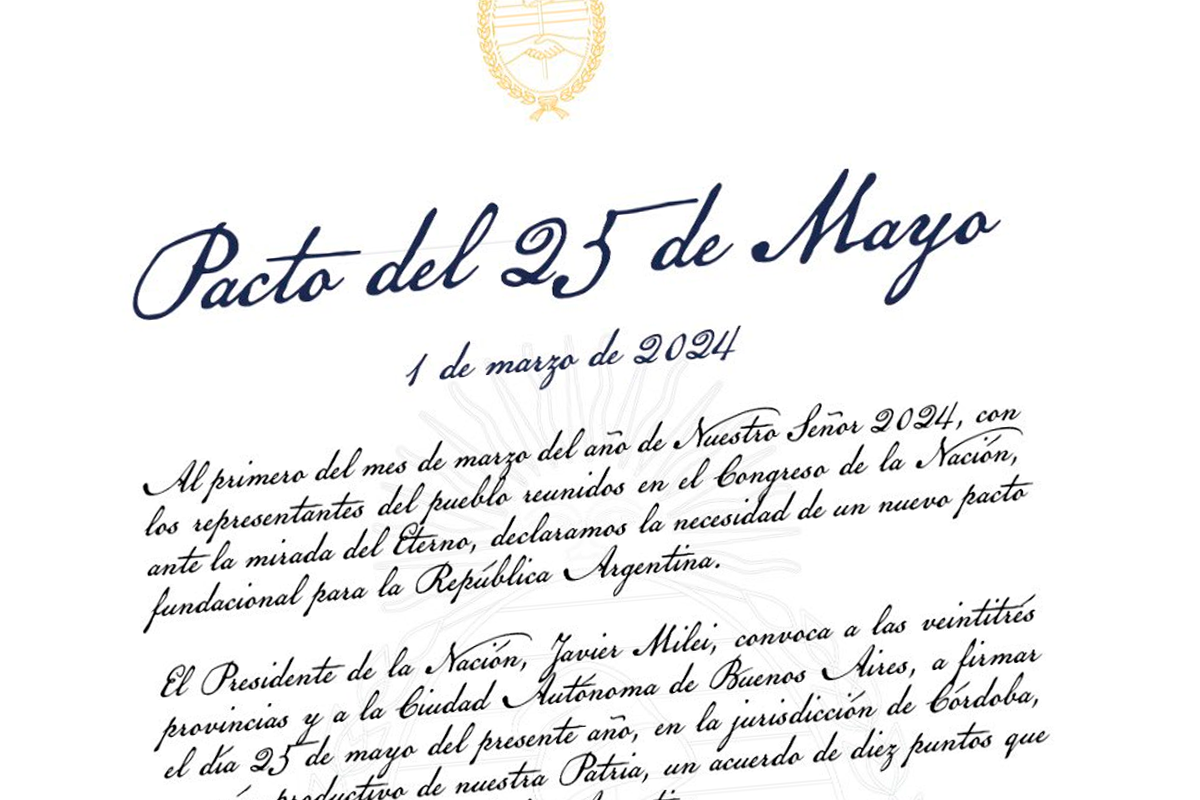 Pacto del 25 de Mayo
1 de marzo de 2024
Al primero del mes de marzo del año de Nuestro Señor 2024, con
los representantes del pueblo reunidos en el Congreso de la Nación,
ante la mirada del Eterno, declaramos la necesidad de un nuevo pacto
fundacional para la República Argentina.
El Presidente de la Nación, Javier Milei, convoca a las veintitrés
provincias y a la Ciudad Autónoma de Buenos Aires, a firmar
el día 25 de mayo del presente año, en la jurisdicción de Córdoba,
productivo de nuestra Patria, un acuerdo de diez puntos que